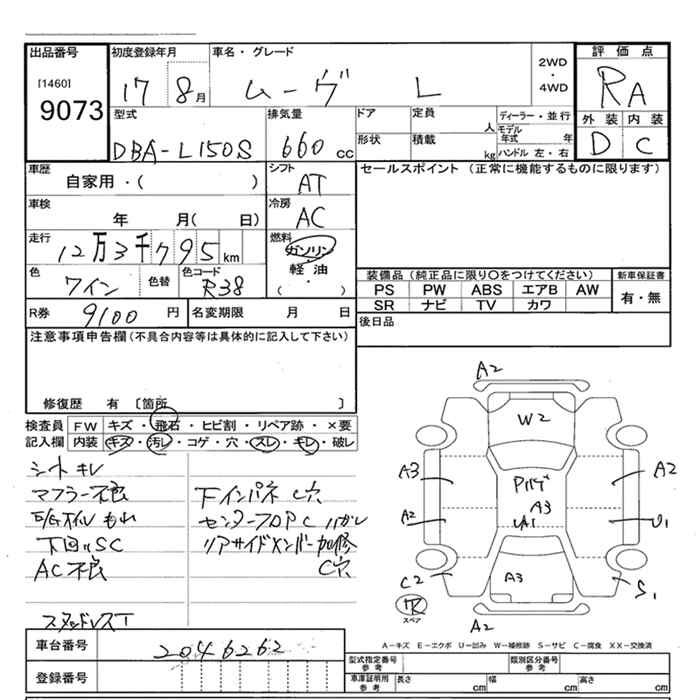 出品番号
[1460]
9073
初度登録年月
17 8月
車名・グレード
ムーヴ L
2WD
・
4WD
評価点
RA
外装 内装
D C
型式
DBA-L150S
排気量
660 cc
ドア
定員
人
形状
積載
kg
ディーラー・並行
モデル年式 年
ハンドル 左・右
車歴
自家用・( )
シフト
AT
車検
年 月( 日)
冷房
AC
走行
12万3千795 km
燃料
ガソリン
軽油
・
( )
色
ワイン
色替
色コード
R38
R券
9100 円
名変期限 月 日
セールスポイント (正常に機能するものに限ります)
装備品(純正品に限り○をつけてください)
PS PW ABS エアB AW
SR ナビ TV カワ
新車保証書
有・無
後日品
注意事項申告欄(不具合内容等は具体的に記入して下さい)
修復歴 有 〔箇所 〕
検査員記入欄
FW キズ・飛石・ヒビ割・リペア跡・×要
内装 キズ・汚レ・コゲ・穴・スレ・キレ・破レ
シートキレ
マフラー不良
E/Gオイルもれ
下回りSC
AC不良
スタッドレスT
下インパネ C穴
センターフロアC ハガレ
リアサイドメンバー加修
C穴
A2
W2
A3
A2
Pパゲ
A3
U1
A2
U1
C2
A3
S1
スペア
A2
A-キズ E-エクボ U-凹み W-補修跡 S-サビ C-腐食 XX-交換済
車台番号
2046262
登録番号
型式指定番号
参考
類別区分番号
参考
車庫証明用
参考
長さ cm
幅 cm
高さ cm